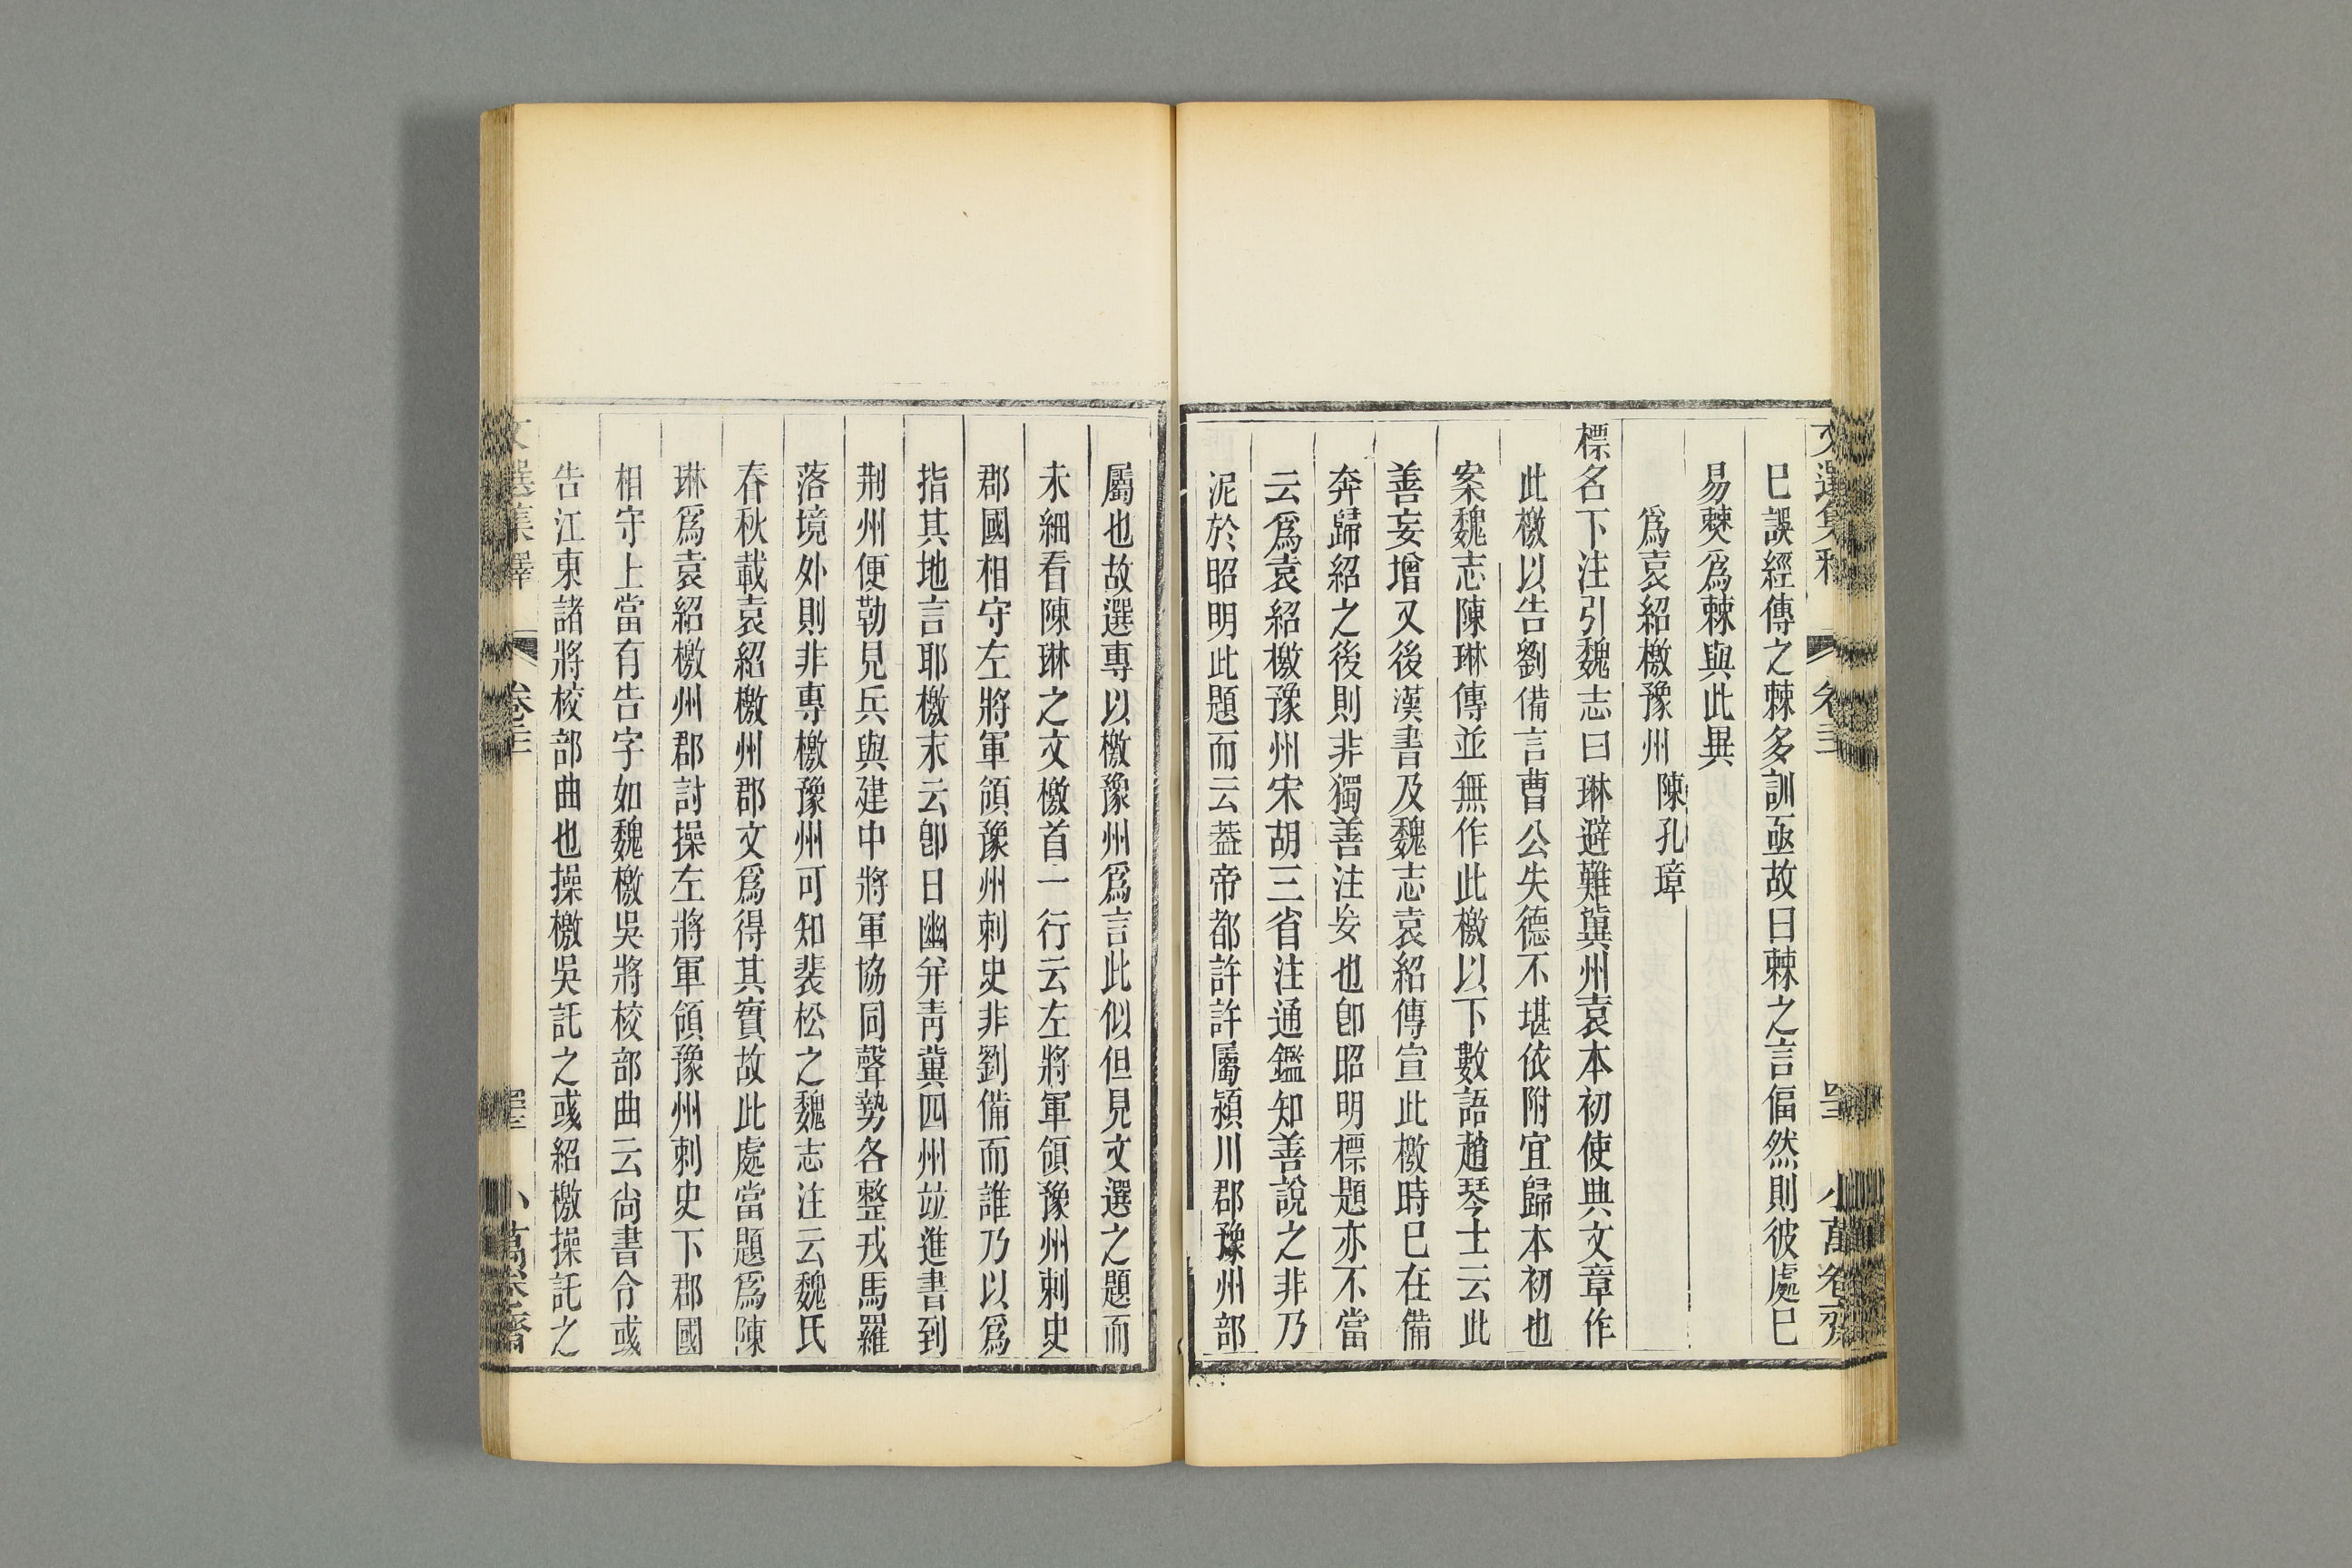 巳誤經傳之棘多訓亟故曰棘之言偪然則彼處巳
易僰爲棘與此異
爲袁紹檄豫州 陳孔璋
標名下注引魏志曰琳避難兾州袁本初使典文章作
此檄以告劉備言曹公失德不堪依附宜歸本初也
案魏志陳琳傳並無作此檄以下數語趙琴士云此
善妄增又後漢書及魏志袁紹傳宣此檄時巳在備
奔歸紹之後則非獨善注妄也卽昭明標題亦不當
云爲袁紹檄豫州宋胡三省注通鑑知善說之非乃
泥於昭明此題而云葢帝都許許屬潁川郡豫州部
屬也故選專以檄豫州爲言此似但見文選之題而
未細看陳琳之文檄首一行云左將軍領豫州刺史
郡國相守左將軍領豫州刺史非劉備而誰乃以爲
指其地言耶檄末云卽日幽并靑冀四州竝進書到
荆州便勒見兵與建中將軍協同聲勢各整戎馬羅
落境外則非專檄豫州可知裴松之魏志注云魏氏
春秋載袁紹檄州郡文爲得其實故此處當題爲陳
琳爲袁紹檄州郡討操左將軍領豫州刺史下郡國
相守上當有告字如魏檄吳將校部曲云尙書令彧
告江東諸將校部曲也操檄吳託之彧紹檄操託之
文選集釋 卷二十三 小萬卷齋